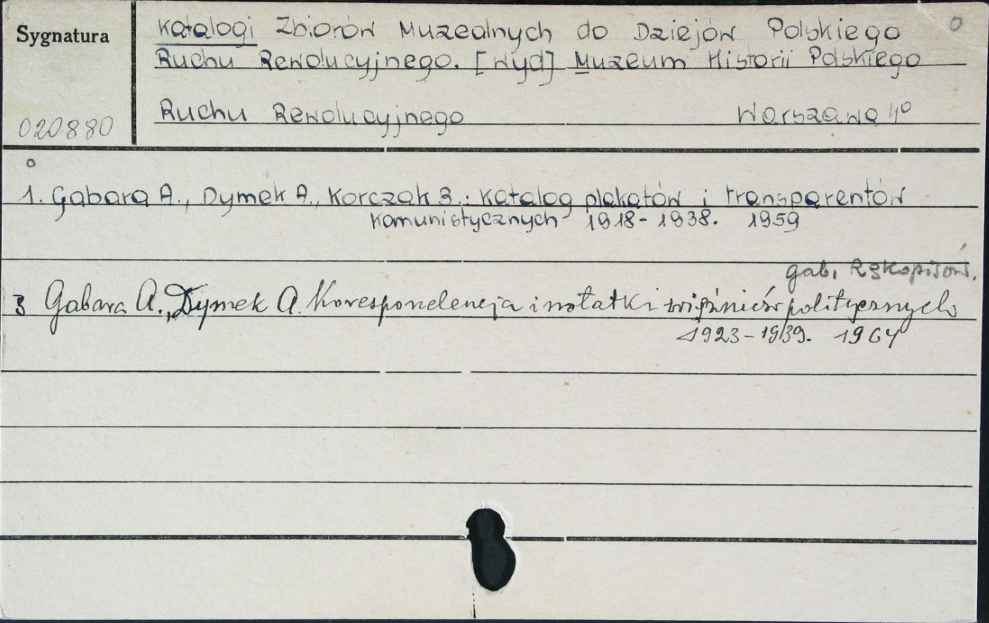 Sygnatura
Katalogi Zbiorów Muzealnych do Dziejów Polskiego
Ruchu Rewolucyjnego. [Wyd] Muzeum Historii Polskiego
Ruchu Rewolucyjnego Warszawa 4°
020880
1. Gabara A., Dymek A., Korczak B.: Katalog plakatów i transparentów
Komunistycznych 1918-1938. 1959
gab. Rękopisów.
3 Gabara A., Dymek A. Korespondencja i notatki więźniów politycznych
1923-1939. 1964